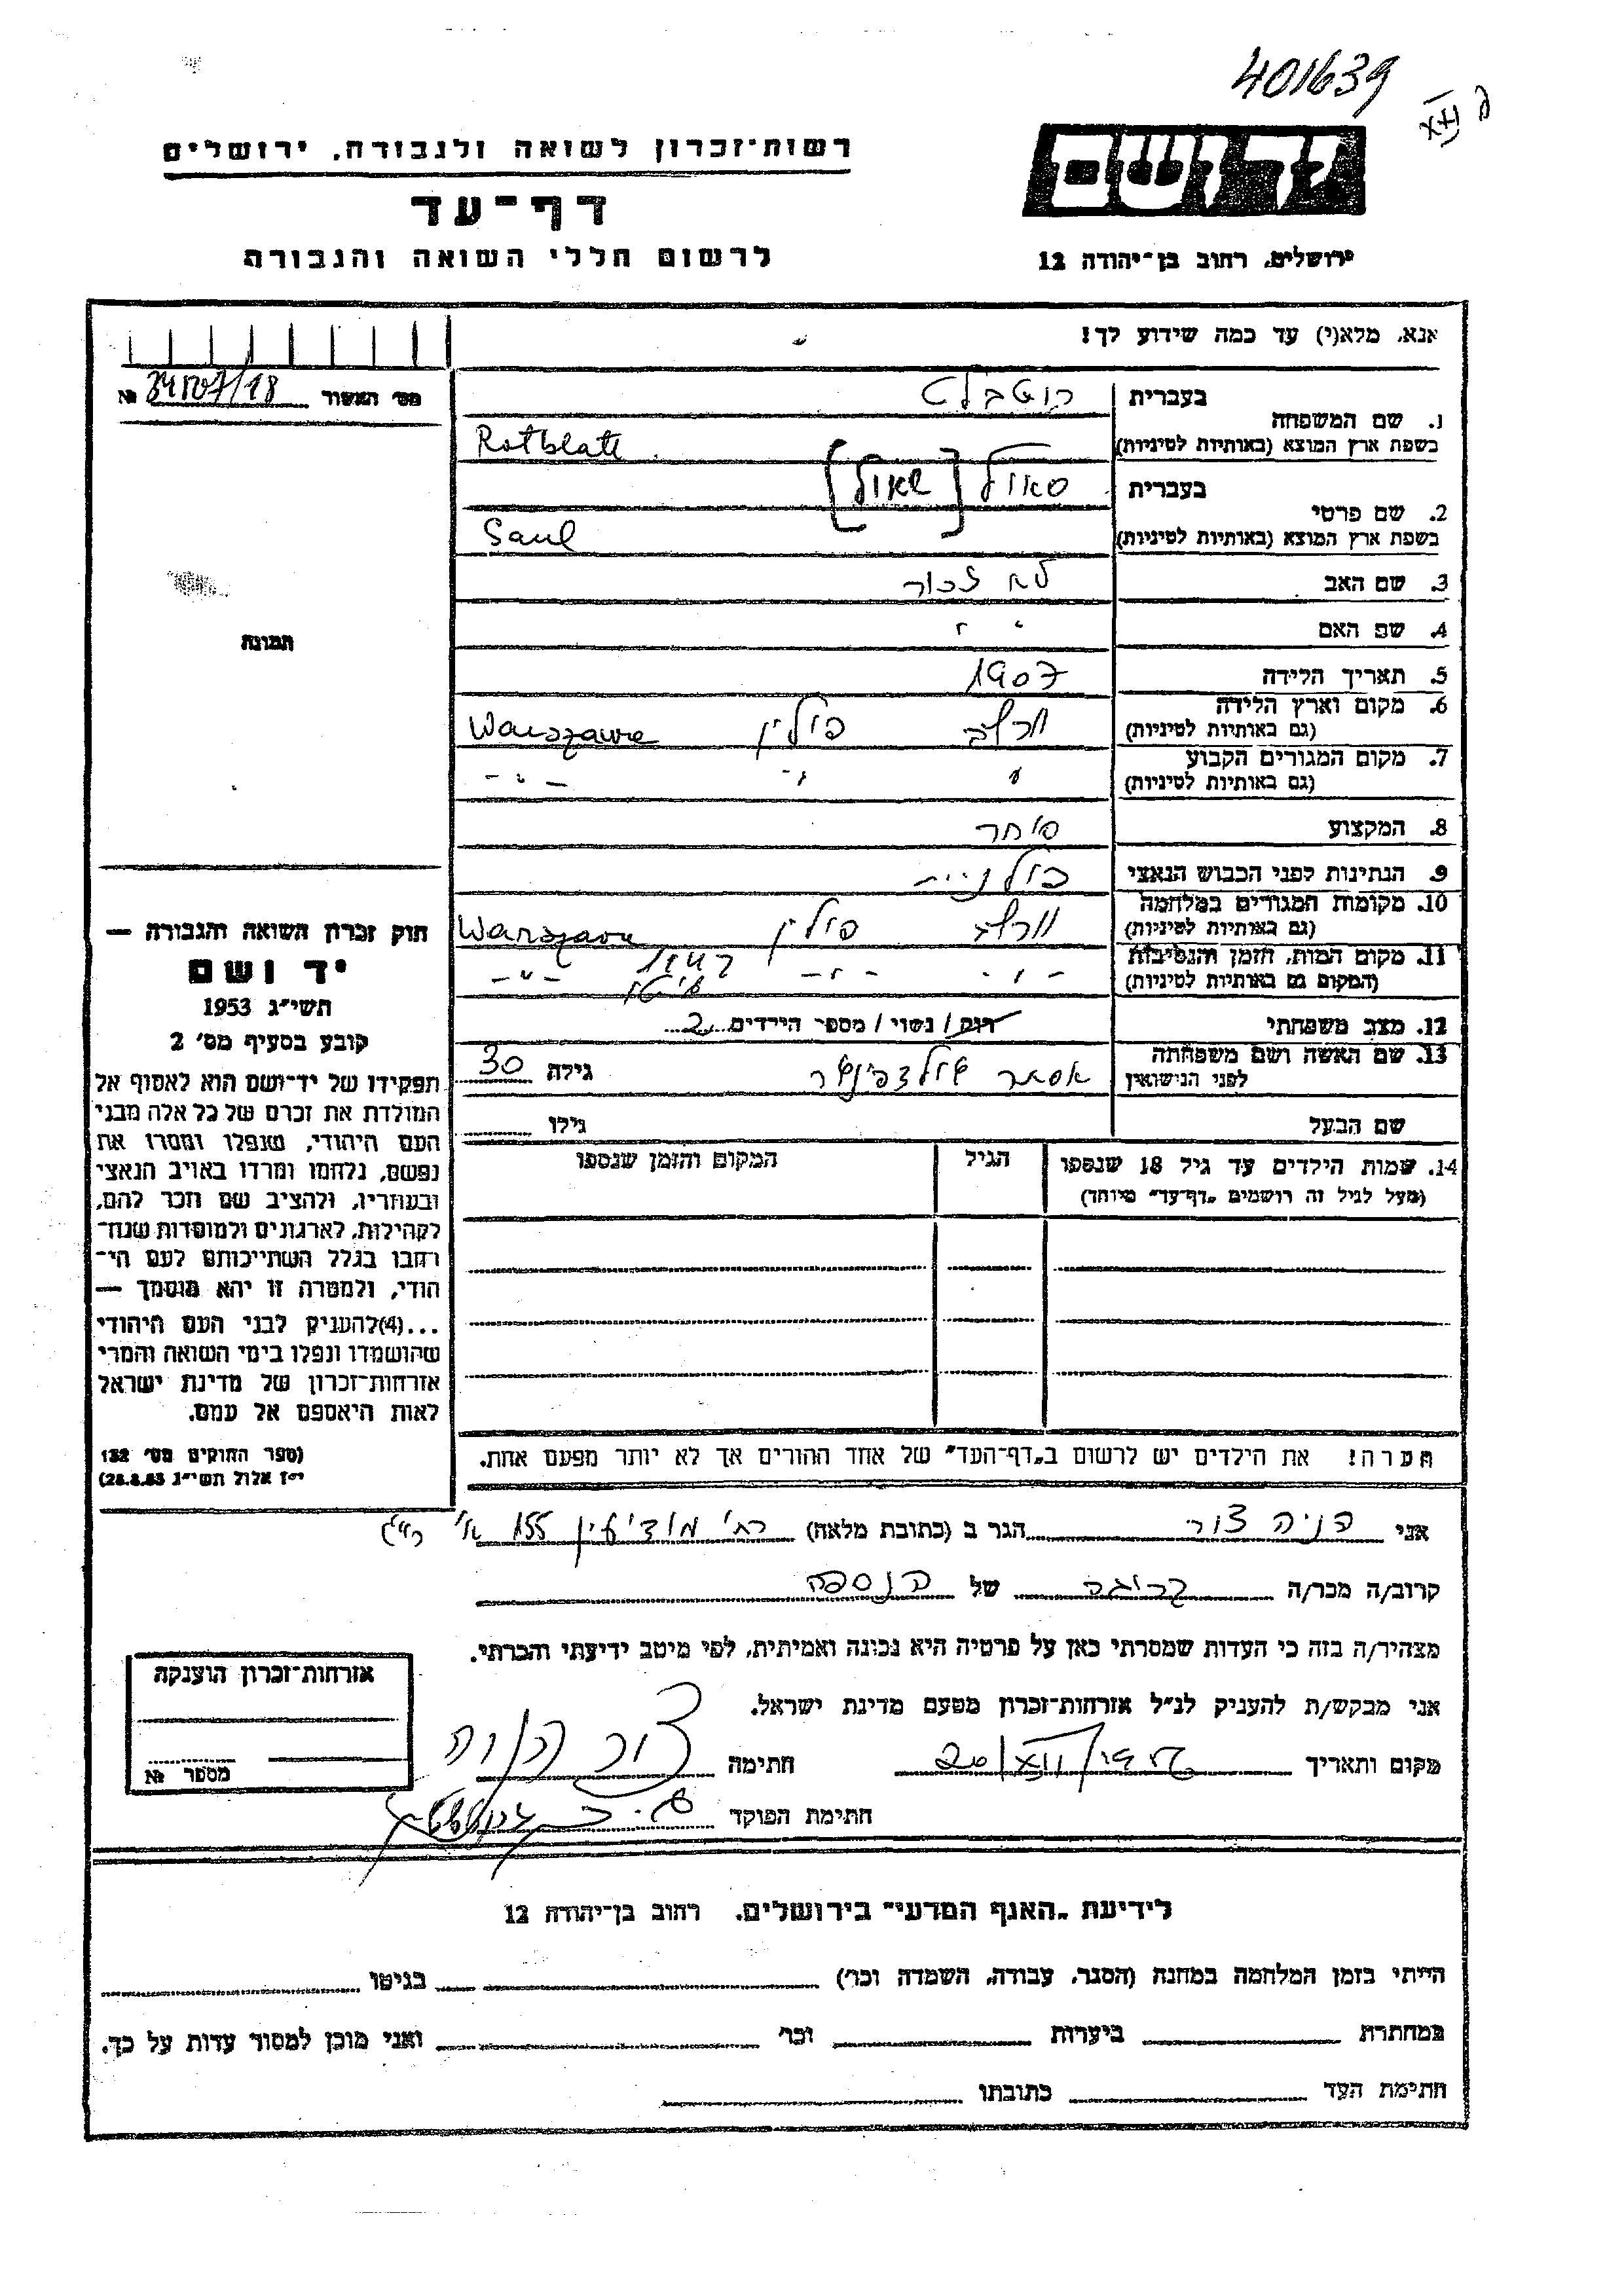 401639
רשות-זכרון לשואה ולגבורה, ירושלים
דף-עד
לרשום חללי השואה והגבורה
ידושם
ירושלים, רחוב בן-יהודה 12
אנא, מלא(י) עד כמה שידוע לך!
מס' האשור №
1. שם המשפחה
בעברית רוטבלט
בשפת ארץ המוצא (באותיות לטיניות) Rotblatt
2. שם פרטי
בעברית סאול [שאול]
בשפת ארץ המוצא (באותיות לטיניות) Saul
3. שם האב לא זכור
4. שם האם " "
5. תאריך הלידה 1907
6. מקום וארץ הלידה (גם באותיות לטיניות) ורשה פולין Warszawa
7. מקום המגורים הקבוע (גם באותיות לטיניות) " -"- -"-
8. המקצוע סוחר
9. הנתינות לפני הכבוש הנאצי פולנית
10. מקומות המגורים במלחמה (גם באותיות לטיניות) ורשה פולין Warszawa
11. מקום המות, הזמן והנסיבות (המקום גם באותיות לטיניות) -"- -"- -"-
12. מצב משפחתי רווק / נשוי / מספר הילדים 2
13. שם האשה ושם משפחתה לפני הנישואין אסתר גילה 30
שם הבעל גילו
14. שמות הילדים עד גיל 18 שנספו הגיל המקום והזמן שנספו
(מעל לגיל זה רושמים „דף-עד" מיוחד)
הערה! את הילדים יש לרשום ב„דף-העד" של אחד ההורים אך לא יותר מפעם אחת.
תמונה
חוק זכרון השואה והגבורה —
יד ושם
תשי"ג 1953
קובע בסעיף מס' 2
תפקידו של יד-ושם הוא לאסוף אל
המולדת את זכרם של כל אלה מבני
העם היהודי, שנפלו ומסרו את
נפשם, נלחמו ומרדו באויב הנאצי
ובעוזריו, ולהציב שם וזכר להם,
לקהילות, לארגונים ולמוסדות שנח-
רבו בגלל השתייכותם לעם הי-
הודי, ולמטרה זו יהא מוסמך —
...(4)להעניק לבני העם היהודי
שהושמדו ונפלו בימי השואה והמרי
אזרחות-זכרון של מדינת ישראל
לאות היאספם אל עמם.
(ספר החוקים מס' 132
י"ז אלול תשי"ג 28.8.53)
אני צור הגר ב (כתובת מלאה) רח' מודיעין 155 ר"ג
קרוב/ה מכר/ה קרובה של הנספה
מצהיר/ה בזה כי העדות שמסרתי כאן על פרטיה היא נכונה ואמיתית, לפי מיטב ידיעתי והכרתי.
אני מבקש/ת להעניק לנ"ל אזרחות-זכרון מטעם מדינת ישראל.
מקום ותאריך חתימה צור
חתימת הפוקד
אזרחות-זכרון הוענקה
מספר №
לידיעת „האגף המדעי" בירושלים, רחוב בן-יהודה 12
הייתי בזמן המלחמה במחנה (הסגר, עבודה, השמדה וכו') בגיטו
במחתרת ביערות וכו' ואני מוכן למסור עדות על כך.
חתימת העד כתובתו